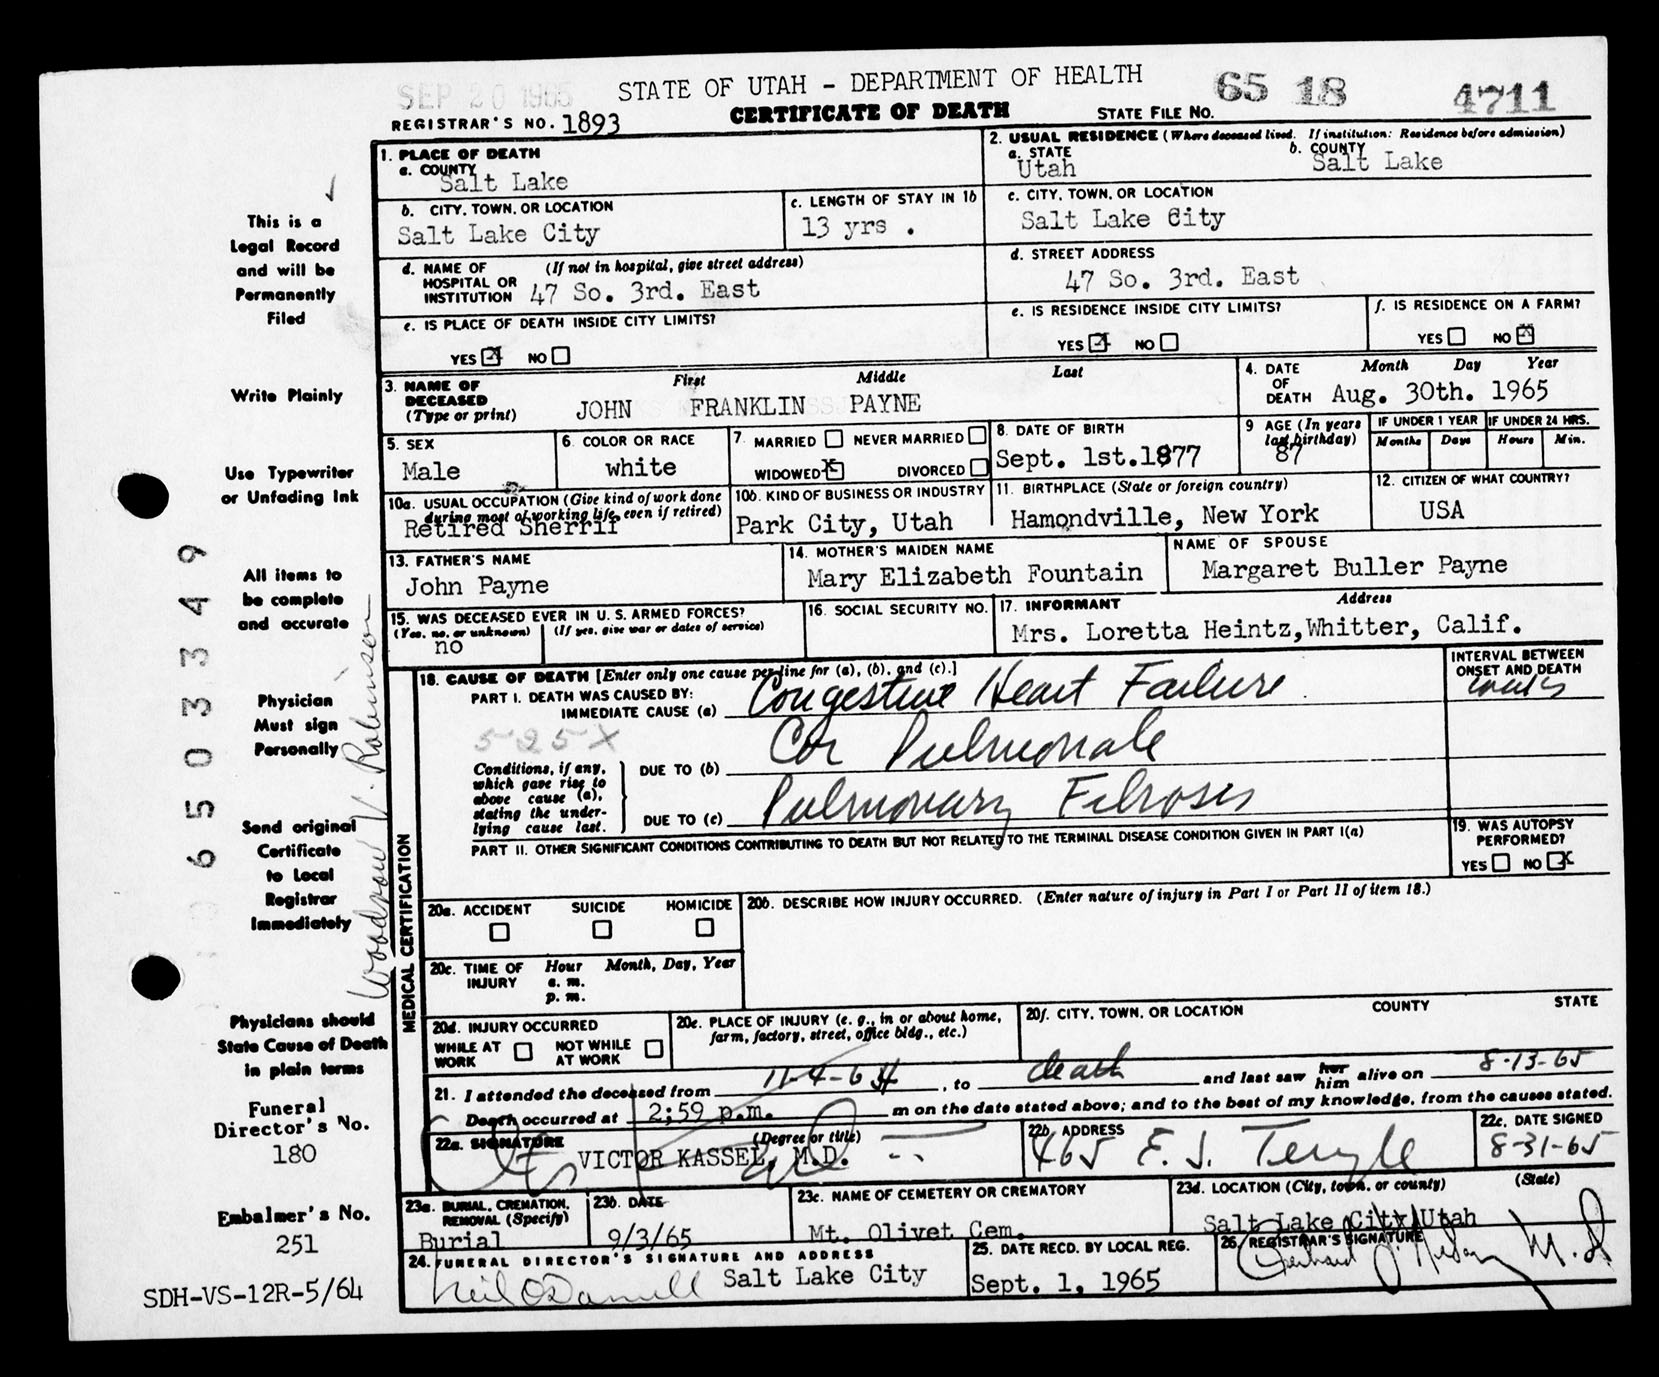 SEP 20 1965
STATE OF UTAH - DEPARTMENT OF HEALTH
65 18 4711
REGISTRAR'S NO. 1893
CERTIFICATE OF DEATH
STATE FILE NO.
This is a
Legal Record
and will be
Permanently
Filed
Write Plainly
Use Typewriter
or Unfading Ink
All items to
be complete
and accurate
Physician
Must sign
Personally
Send original
Certificate
to Local
Registrar
Immediately
Physicians should
State Cause of Death
in plain terms
Funeral
Director's No.
180
Embalmer's No.
251
SDH-VS-12R-5/64
6503349
Woodrow V. Robinson
1. PLACE OF DEATH
a. COUNTY
Salt Lake
2. USUAL RESIDENCE (Where deceased lived. If institution: Residence before admission)
a. STATE
Utah
b. COUNTY
Salt Lake
b. CITY, TOWN, OR LOCATION
Salt Lake City
c. LENGTH OF STAY IN 1b
13 yrs .
c. CITY, TOWN, OR LOCATION
Salt Lake City
d. NAME OF HOSPITAL OR INSTITUTION (If not in hospital, give street address)
47 So. 3rd. East
d. STREET ADDRESS
47 So. 3rd. East
e. IS PLACE OF DEATH INSIDE CITY LIMITS?
YES X NO
e. IS RESIDENCE INSIDE CITY LIMITS?
YES X NO
f. IS RESIDENCE ON A FARM?
YES NO X
3. NAME OF DECEASED (Type or print)
First Middle Last
JOHN FRANKLIN PAYNE
4. DATE OF DEATH
Month Day Year
Aug. 30th. 1965
5. SEX
Male
6. COLOR OR RACE
white
7. MARRIED NEVER MARRIED
WIDOWED X DIVORCED
8. DATE OF BIRTH
Sept. 1st.1877
9 AGE (In years last birthday)
87
IF UNDER 1 YEAR
Months Days
IF UNDER 24 HRS.
Hours Min.
10a. USUAL OCCUPATION (Give kind of work done during most of working life, even if retired)
Retired Sherrif
10b. KIND OF BUSINESS OR INDUSTRY
Park City, Utah
11. BIRTHPLACE (State or foreign country)
Hamondville, New York
12. CITIZEN OF WHAT COUNTRY?
USA
13. FATHER'S NAME
John Payne
14. MOTHER'S MAIDEN NAME
Mary Elizabeth Fountain
NAME OF SPOUSE
Margaret Buller Payne
15. WAS DECEASED EVER IN U. S. ARMED FORCES?
(Yes, no, or unknown) (If yes, give war or dates of service)
no
16. SOCIAL SECURITY NO.
17. INFORMANT Address
Mrs. Loretta Heintz,Whitter, Calif.
MEDICAL CERTIFICATION
18. CAUSE OF DEATH [Enter only one cause per line for (a), (b), and (c).]
INTERVAL BETWEEN ONSET AND DEATH
PART I. DEATH WAS CAUSED BY:
IMMEDIATE CAUSE (a) Congestive Heart Failure weeks
525X
Conditions, if any, which gave rise to above cause (a), stating the underlying cause last.
DUE TO (b) Cor Pulmonale
DUE TO (c) Pulmonary Fibrosis
PART II. OTHER SIGNIFICANT CONDITIONS CONTRIBUTING TO DEATH BUT NOT RELATED TO THE TERMINAL DISEASE CONDITION GIVEN IN PART I(a)
19. WAS AUTOPSY PERFORMED?
YES NO X
20a. ACCIDENT SUICIDE HOMICIDE
20b. DESCRIBE HOW INJURY OCCURRED. (Enter nature of injury in Part I or Part II of item 18.)
20c. TIME OF INJURY
Hour Month, Day, Year
a. m.
p. m.
20d. INJURY OCCURRED
WHILE AT WORK NOT WHILE AT WORK
20e. PLACE OF INJURY (e. g., in or about home, farm, factory, street, office bldg., etc.)
20f. CITY, TOWN, OR LOCATION COUNTY STATE
21. I attended the deceased from 11-4-64, to death and last saw her him alive on 8-13-65
Death occurred at 2;59 p.m. m on the date stated above; and to the best of my knowledge, from the causes stated.
22a. SIGNATURE (Degree or title)
VICTOR KASSEL, M.D.
22b. ADDRESS
465 E. S. Temple
22c. DATE SIGNED
8-31-65
23a. BURIAL, CREMATION, REMOVAL (Specify)
Burial
23b. DATE
9/3/65
23c. NAME OF CEMETERY OR CREMATORY
Mt. Olivet Cem.
23d. LOCATION (City, town, or county) (State)
Salt Lake City,Utah
24. FUNERAL DIRECTOR'S SIGNATURE AND ADDRESS
Neil O'Donnell Salt Lake City
25. DATE RECD. BY LOCAL REG.
Sept. 1, 1965
26. REGISTRAR'S SIGNATURE
M.D.